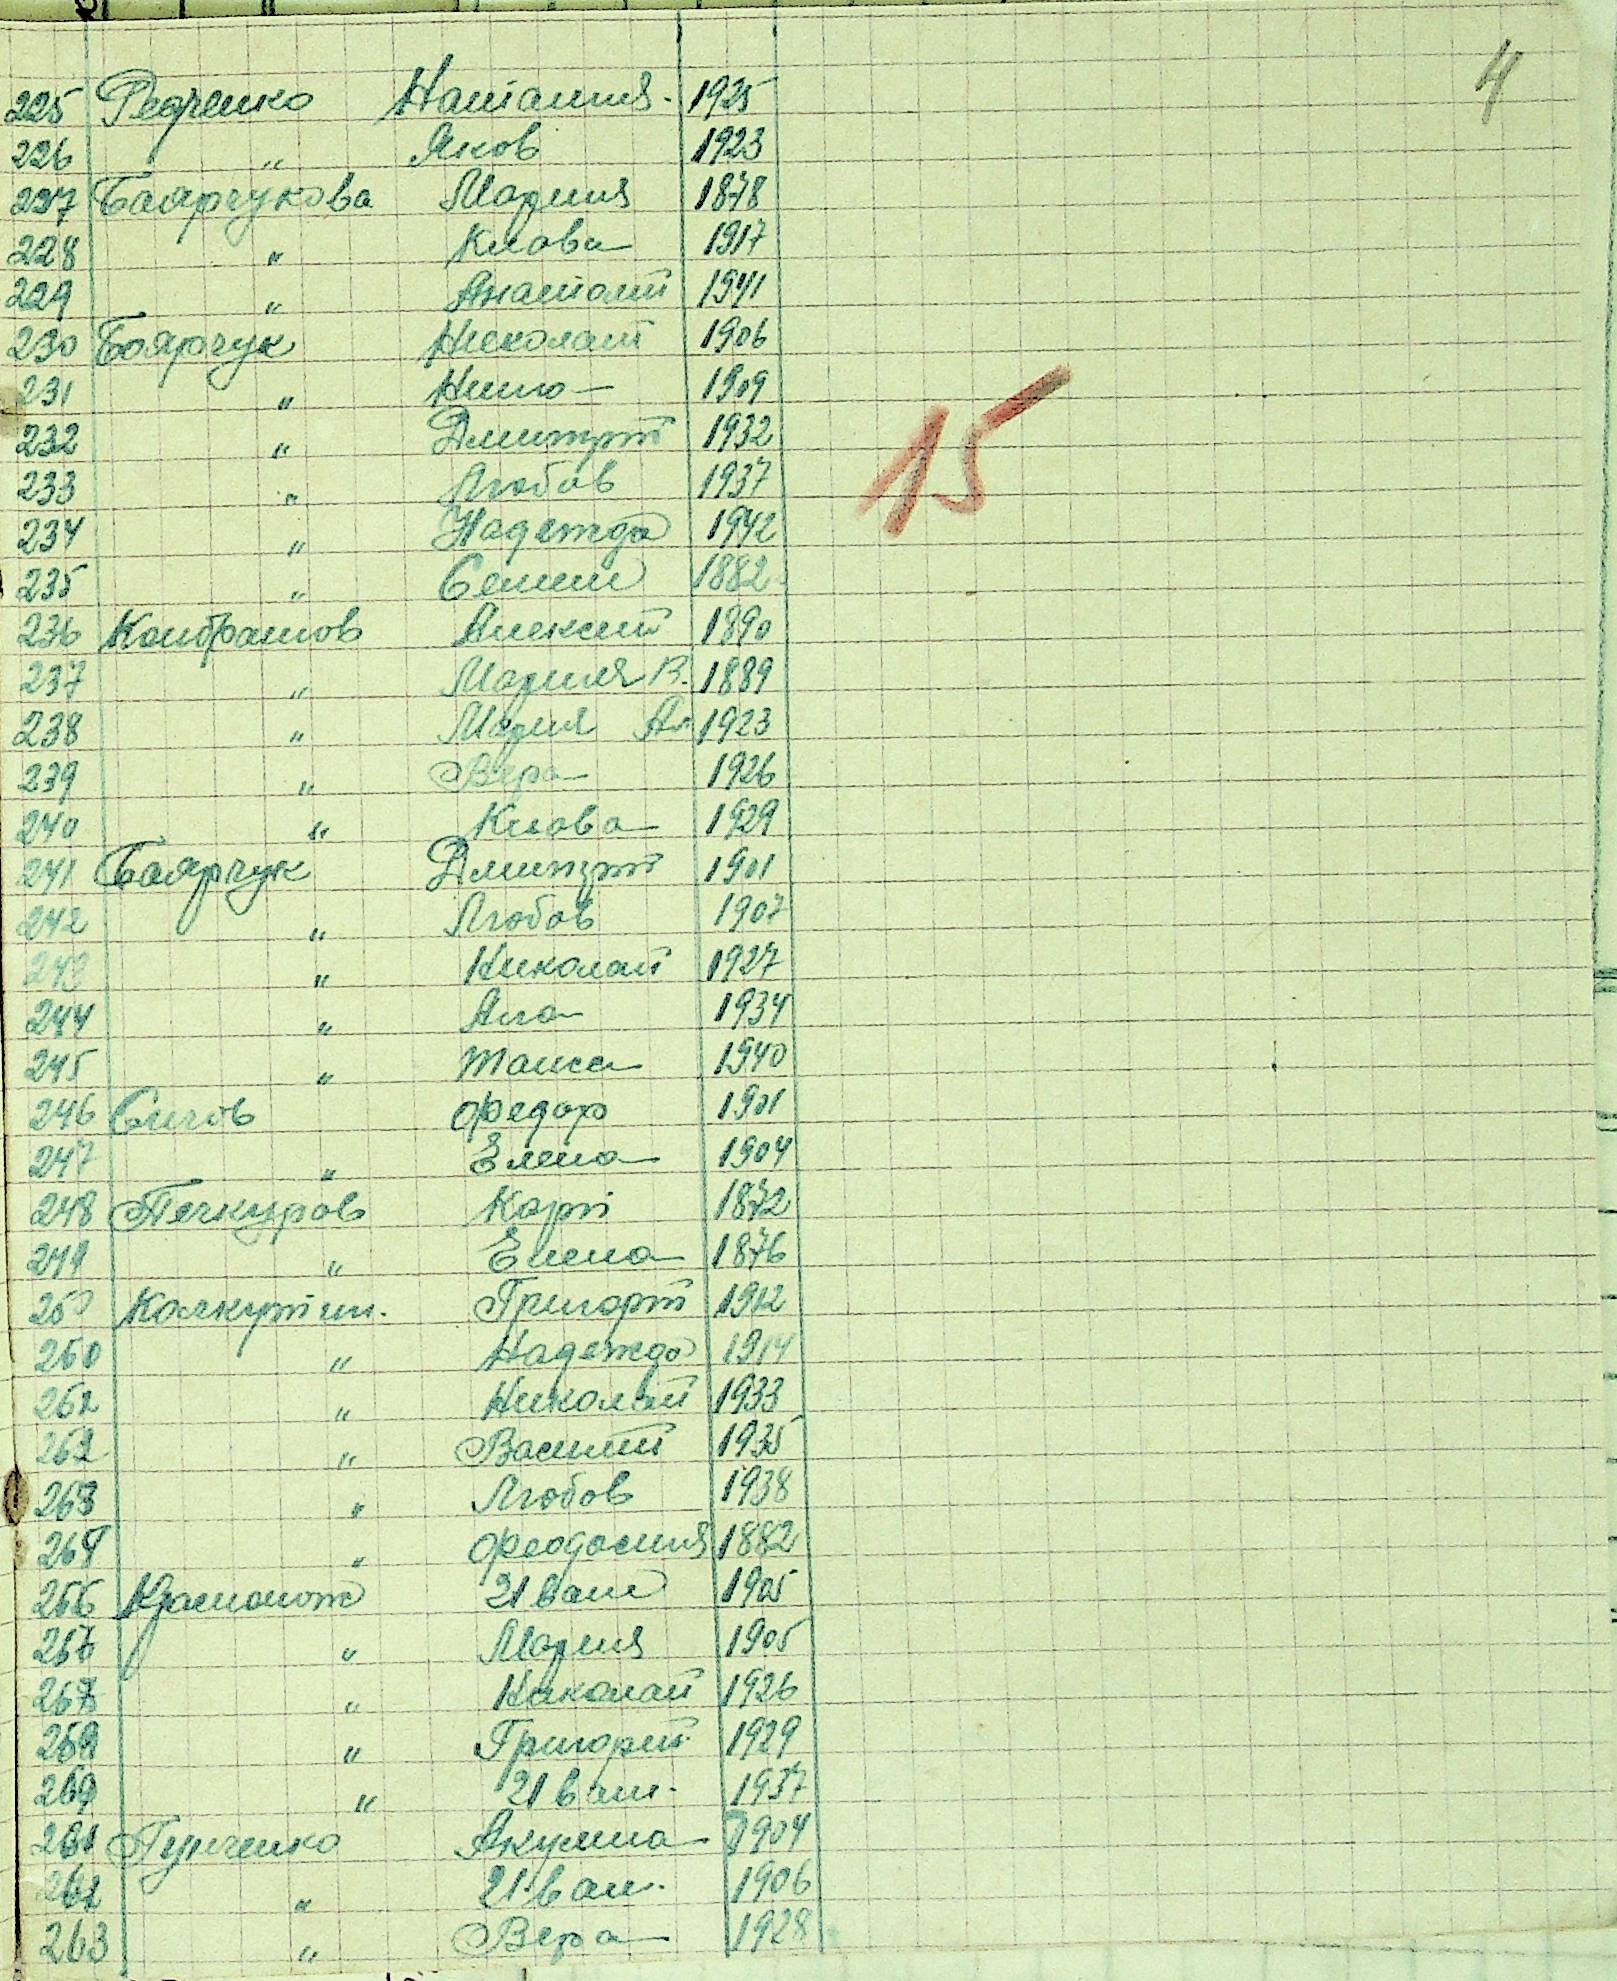 4
225 Редченко Наталия. 1925
226 " Яков 1923
227 Баярчукова Мария 1878
228 " Клава 1917
229 " Анатолий 1941
230 Боярчук Николай 1906
231 " Нина 1909
232 " Дмитрий 1932
233 " Любов 1937
15
234 " Надежда 1942
235 " Семен 1882
236 Кондратов Алексей 1890
237 " Мария В. 1889
238 " Мария Ал 1923
239 " Вера 1926
240 " Клава 1929
241 Боярчук Дмитрий 1901
242 " Любов 1907
243 " Николай 1927
244 " Ала 1934
245 " Таиса 1940
246 Сычов Федор 1901
247 " Елена 1904
248 Печкуров Карп 1872
249 " Елена 1876
250 Григорий 1912
260 " Надежда 1914
262 " Николай 1933
262 " Василий 1935
263 " Любов 1938
264 " Феодосия 1882
266 Иван 1905
" Мария 1905
" Николай 1926
" Григорий 1929
" Иван. 1937
261 Гунченко Акулина 1904
262 " Иван. 1906
263 " Вера 1928